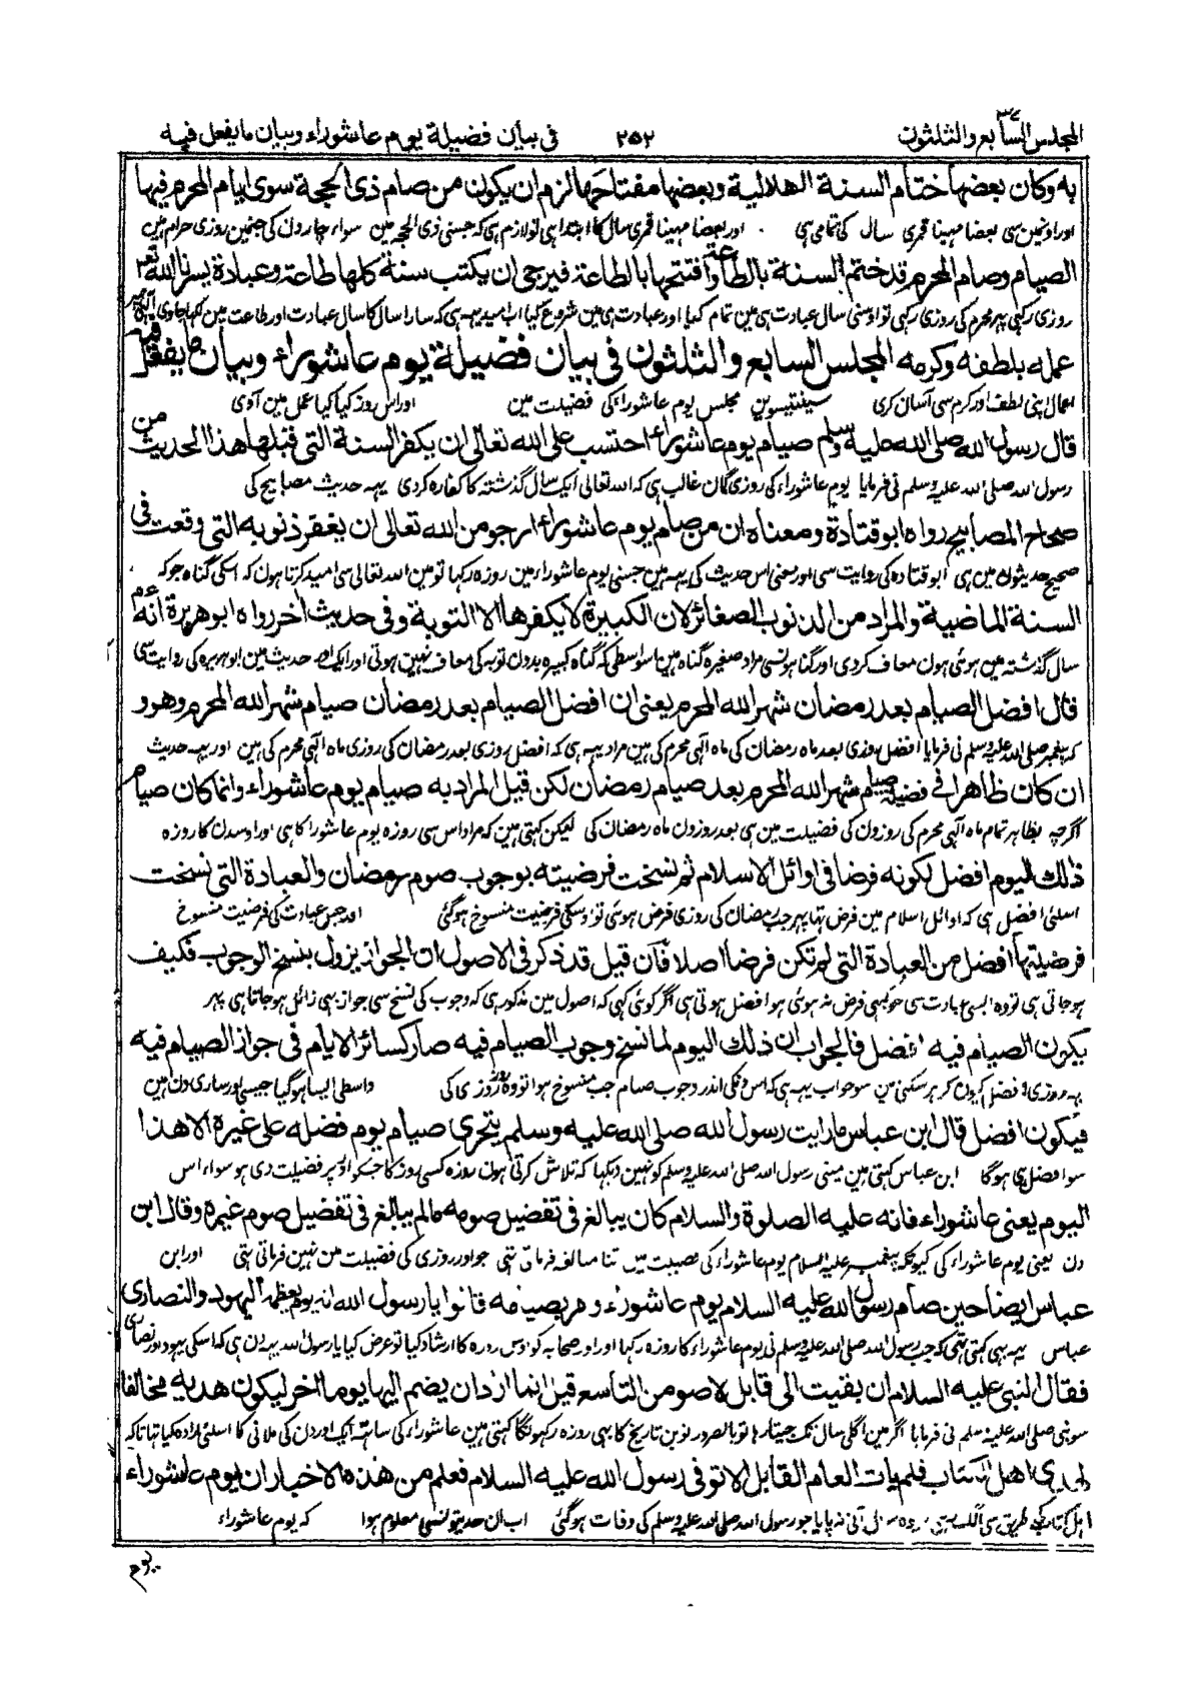 المجلس السابع والثلثون ٣٧ ٢٥٢ فى بيان فضيلة يوم عاشوراء وبيان ما يفعل فيه
به وكان بعضها ختام السنة الهلالية وبعضها مفتاحها لزم ان يكون من صام ذى الحجة سوى ايام المحرم فيها
اور اونمین سی بعضا مہینا قمری سال کی تمامی ہی اور بعضا مہینا قمری سال کا ابتدا ہی تو لازم ہی کہ جسنی ذی الحجہ مین سواء چار دن کی جنمین روزی حرام ہین
الصيام وصام المحرم قد ختم السنة بالطاعة وافتتحها بالطاعة فيرجى ان يكتب سنة كلها طاعة وعبادة يسر الله تعالى
روزی رکہی پہر محرم کی روزی رکہی تو اوسنی سال عبادت ہی مین تمام کیا اور عبادت ہی مین شروع کیا اب امید یہ ہی کہ سارا سال کا سال عبادت اور طاعت مین لکہا جاوی
عمله بلطفه وكرمه المجلس السابع والثلثون فى بيان فضيلة يوم عاشوراء وبيان ما يفعل فيه
اعمال اپنی لطف اور کرم سی آسان کری سینتیسوین مجلس یوم عاشوراء کی فضیلت مین اور اس روز کیا کیا عمل مین آوی
قال رسول الله صلى الله عليه وسلم صيام يوم عاشوراء احتسب على الله تعالى ان يكفر السنة التى قبلها هذا الحديث من
رسول اللہ صلی اللہ علیہ وسلم نی فرمایا یوم عاشوراء کی روزی گمان غالب ہی کہ اللہ تعالی ایک سال گذشتہ کا کفارہ کردی یہہ حدیث مصابیح کی
صحاح المصابيح رواه ابو قتادة ومعناه ان من صام يوم عاشوراء ارجو من الله تعالى ان يغفر ذنوبه التى وقعت فى
صحیح حدیثون مین ہی ابو قتادہ کی روایت سی اور معنی اس حدیث کی یہہ ہین جسنی یوم عاشوراء مین روزہ رکہا تو مین اللہ تعالی سی امید کرتا ہون کہ اسکی گناہ جو کہ
السنة الماضية والمراد من الذنوب الصغائر لان الكبيرة لا يكفرها الا التوبة وفى حديث اخر رواه ابو هريرة انه عم
سال گذشتہ مین ہوئی ہون معاف کردی اور گناہونسی مراد صغیرہ گناہ ہین اسواسطی کہ گناہ کبیرہ بدون توبہ کی معاف نہین ہوتی اور ایک اور حدیث مین ابو ہریرہ کی روایت سی
قال افضل الصيام بعد رمضان شهر الله المحرم يعنى ان افضل الصيام بعد رمضان صيام شهر الله المحرم وهو و
کہ پیغمبر صلی اللہ علیہ وسلم نی فرمایا افضل روزی بعد ماہ رمضان کی ماہ الہی محرم کی ہین مراد یہہ ہی کہ افضل روزی بعد رمضان کی روزی ماہ الہی محرم کی ہین اور یہہ حدیث
ان كان ظاهرا فى فضيلة صيام شهر الله المحرم بعد صيام رمضان لكن قيل المراد به صيام يوم عاشوراء وانما كان صيام
اگرچہ بظاہر تمام ماہ الہی محرم کی روزون کی فضیلت مین ہی بعد روزون ماہ رمضان کی لیکن کہتی ہین کہ مراد اس سی روزہ یوم عاشورا کا ہی اور اوسدن کا روزہ
ذلك اليوم افضل لكونه فرضا فى اوائل الاسلام ثم نسخت فرضيته بوجوب صوم رمضان والعبادة التى نسخت
اسلئی افضل ہی کہ اوائل اسلام مین فرض تہا پہر جب رمضان کی روزی فرض ہوئی تو اوسکی فرضیت منسوخ ہوگئی اور جس عبادت کی فرضیت منسوخ
فرضيتها افضل من العبادة التى لم تكن فرضا اصلا فان قيل قد ذكر فى الاصول ان الجواز يزول بنسخ الوجوب فكيف
ہو جاتی ہی تو وہ ایسی عبادت سی جو کبہی فرض نہ ہوئی ہو افضل ہوتی ہی اگر کوئی کہی کہ اصول مین مذکور ہی کہ وجوب کی نسخ سی جواز ہی زائل ہو جاتا ہی پہر
يكون الصيام فيه افضل فالجواب ان ذلك اليوم لما نسخ وجوب الصيام فيه صار كسائر الايام فى جواز الصيام فيه
یہہ روزی افضل کیون کر ہو سکتی ہین سو جواب یہہ ہی کہ اس دنکی اندر وجوب صیام جب منسوخ ہوا تو وہ روز روزی کی واسطی ایسا ہوگیا جیسی اور ساری دن ہین
فيكون افضل قال ابن عباس ما رايت رسول الله صلى الله عليه وسلم يتحرى صيام يوم فضله على غيره الا هذا
سو افضل ہی ہوگا ابن عباس کہتی ہین مینی رسول اللہ صلی اللہ علیہ وسلم کو نہین دیکہا کہ تلاش کرتی ہون روزہ کسی روز کا جسکو اور پر فضیلت دی ہو سواء اس
اليوم يعنى عاشوراء فانه عليه الصلوة والسلام كان يبالغ فى تفضيل صومه ما لم يبالغ فى تفضيل صوم غيره وقال ابن
دن یعنی یوم عاشوراء کی کیونکہ پیغمبر علیہ السلام یوم عاشوراء کی فضیلت مین اتنا مبالغہ فرماتی تہی جو اور روزی کی فضیلت مین نہین فرماتی تہی اور ابن
عباس ايضا حين صام رسول الله عليه السلام يوم عاشوراء وامر بصيامه قالوا يا رسول الله انه يوم يعظمه اليهود والنصارى
عباس یہہ بہی کہتی تہی کہ جب رسول اللہ صلی اللہ علیہ وسلم نی یوم عاشوراء کا روزہ رکہا اور اور صحابہ کو اوس روزہ کا ارشاد کیا تو عرض کیا یا رسول اللہ یہہ دن ہی کہ اسکی یہود اور نصاری
فقال النبى عليه السلام ان بقيت الى قابل لاصومن التاسع قيل انما اراد ان يضم اليها يوما اخر ليكون هديه مخالفا
سو نبی صلی اللہ علیہ وسلم نی فرمایا اگر مین اگلی سال تک جیتا رہا تو بالضرور نوین تاریخ کا بہی روزہ رکہونگا کہتی ہین عاشوراء کی ساتہہ ایک اور دن کی ملانی کا اسلئی ارادہ کیا تہا تاکہ
لهدى اهل الكتاب فلم يات العام القابل الا توفى رسول الله عليه السلام فعلم من هذه الاخبار ان يوم عاشوراء
اہل کتاب کی طریق سی الگ رہی نہ پایا جو رسول اللہ صلی اللہ علیہ وسلم کی وفات ہوگئی اب ان حدیثونسی معلوم ہوا کہ یوم عاشوراء
يوم